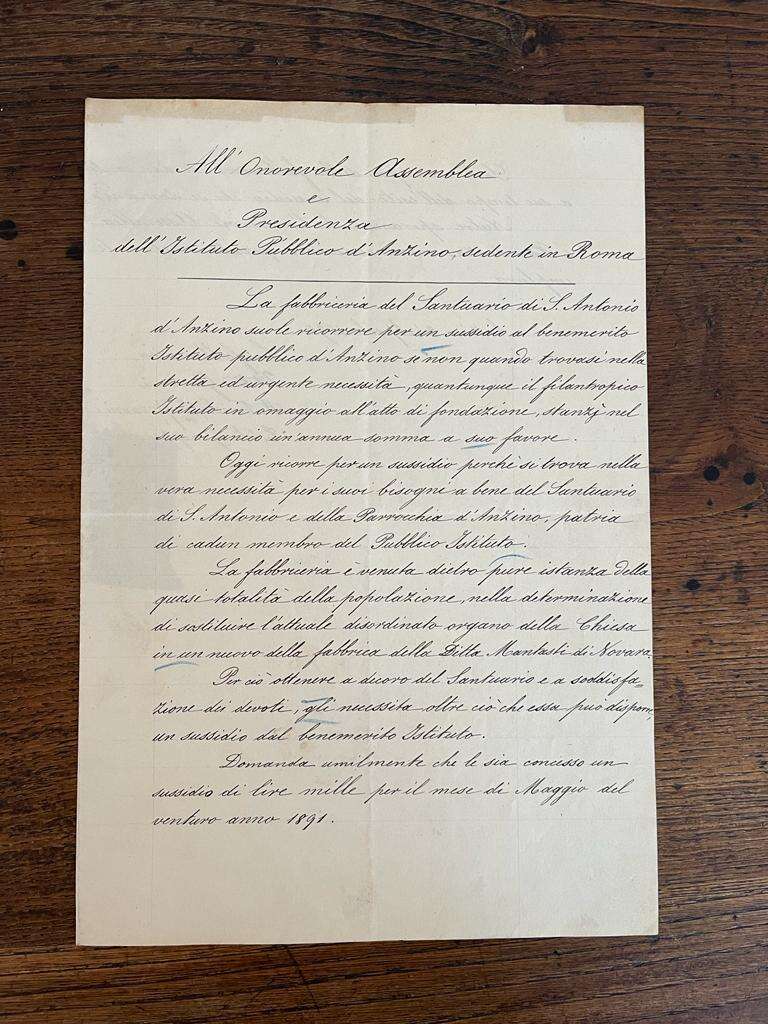 All' Onorevole Assemblea
e
Presidenza
dell'Istituto Pubblico d'Anzino, sedente in Roma
La fabbriceria del Santuario di S. Antonio
d'Anzino suole ricorrere per un sussidio al benemerito
Istituto pubblico d'Anzino se non quando trovasi nella
stretta ed urgente necessità, quantunque il filantropico
Istituto in omaggio all'atto di fondazione, stanzj nel
suo bilancio un'annua somma a suo favore.
Oggi ricorre per un sussidio perchè si trova nella
vera necessità per i suoi bisogni a bene del Santuario
di S. Antonio e della Parrocchia d'Anzino, patria
di cadun membro del Pubblico Istituto.
La fabbriceria è venuta dietro pure istanza della
quasi totalità della popolazione, nella determinazione
di sostituire l'attuale disordinato organo della Chiesa
in un nuovo della fabbrica della Ditta Mantasti di Novara.
Per ciò ottenere a decoro del Santuario e a soddisfa-
zione dei devoti, gli necessita oltre ciò che essa può disporre,
un sussidio dal benemerito Istituto.
Domanda umilmente che le sia concesso un
sussidio di lire mille per il mese di Maggio del
venturo anno 1891.